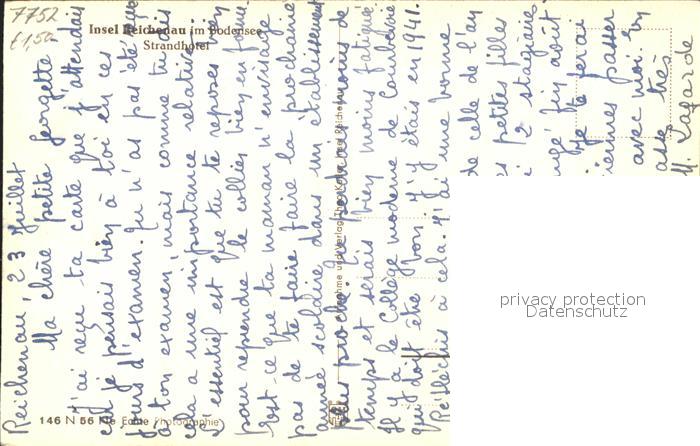 7752
£1,50
Insel Reichenau im Bodensee
Strandhotel
Reichenau, 23 Juillet
Ma chère petite Georgette
J'ai reçu ta carte que j'attendais
car je pensais bien à toi en ces
jours d'examen. Tu n'as pas été
à ton examen, mais comme tu sais
cela a une importance relative.
L'essentiel est que tu te reposes bien
pour reprendre le collier bien en forme.
Est-ce que ta maman n'envisage
pas de te faire faire la prochaine
année scolaire dans un établissement
plus proche. Tu perdrais moins de
temps et serais bien moins fatiguée.
Il y a le Collège moderne de
qui doit être bon. J'y étais en 1941.
Réfléchis à cela. J'ai une bonne
de celle de l'an
petites filles
2 stagiaires
fin août
Je te ferai
passer
avec moi. En
très
M Lagarde
146 N 56 Ne Echte Photographie
privacy protection
Datenschutz